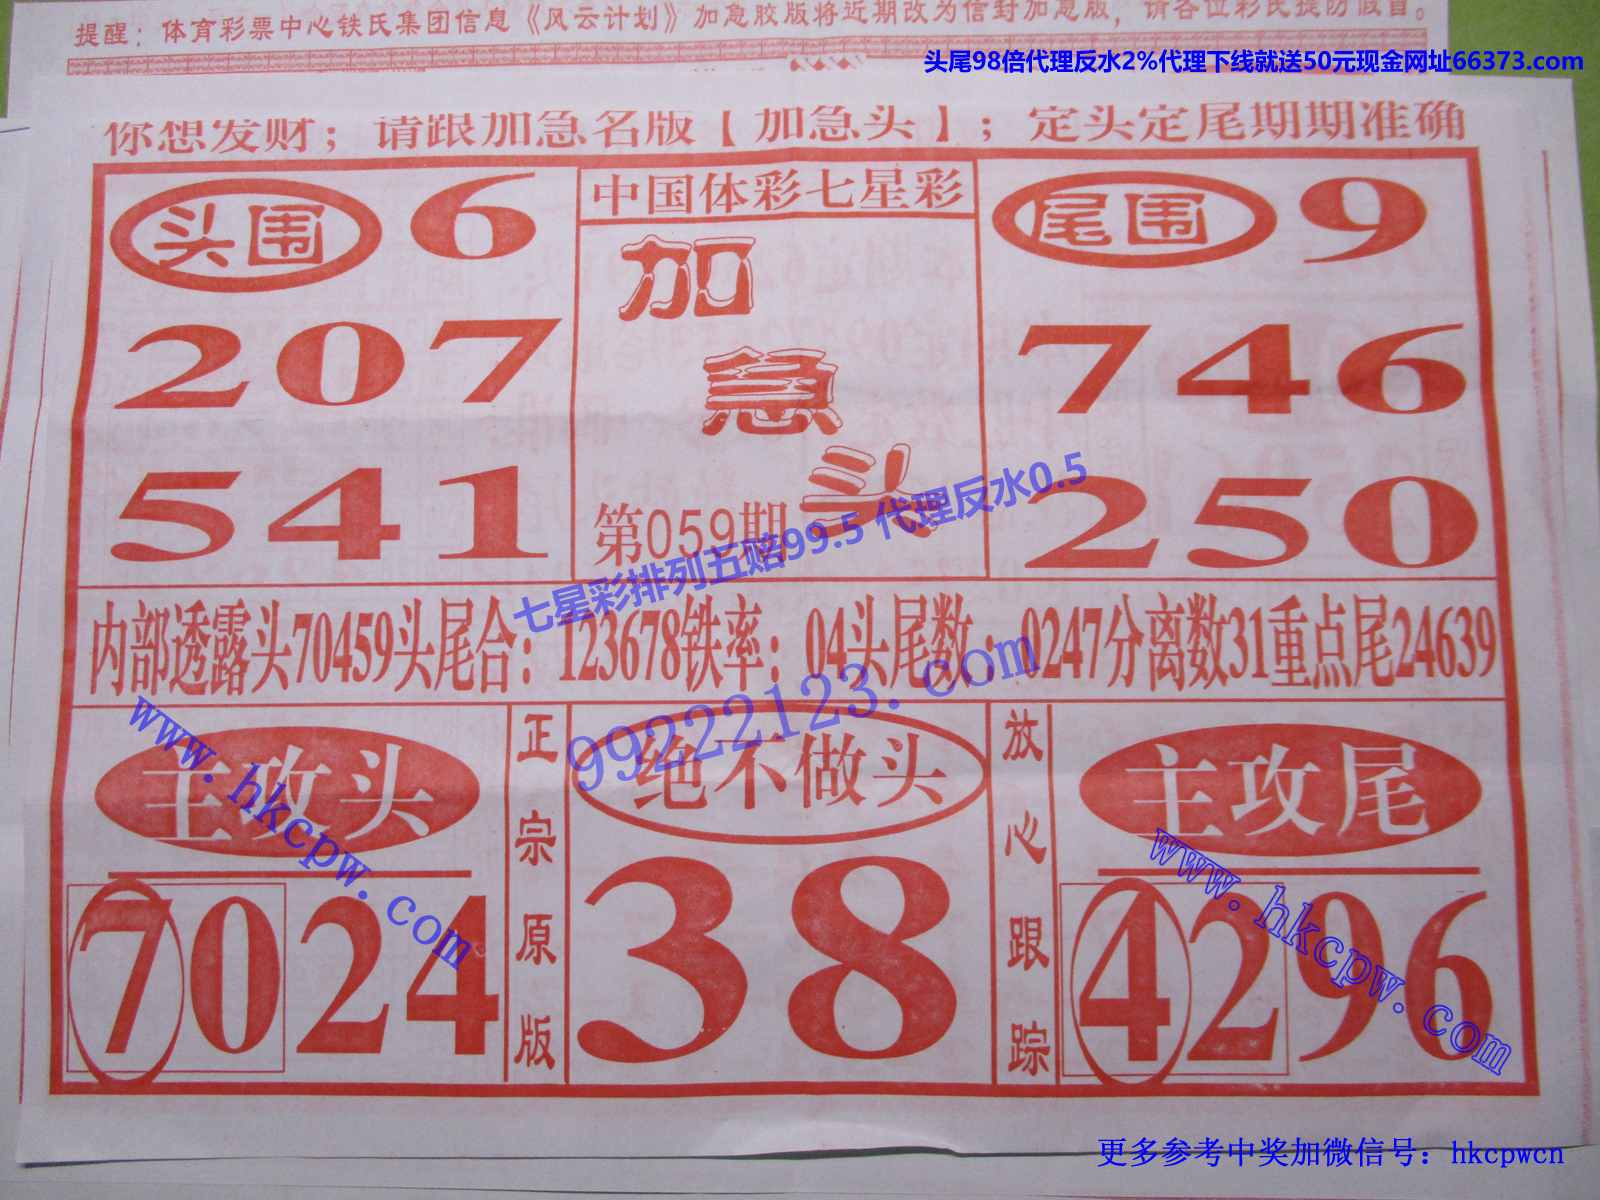 提醒：体育彩票中心铁氏集团信息《风云计划》加急胶版将近期改为信封加急版，请各位彩民提防假冒。
头尾98倍代理反水2%代理下线就送50元现金网址66373.com
你想发财；请跟加急名版【加急头】；定头定尾期期准确
头围 6
207
541
中国体彩七星彩
加
急
头
第059期
尾围 9
746
250
七星彩排列五赔99.5 代理反水0.5
内部透露头70459头尾合：123678铁率：04头尾数：0247分离数31重点尾24639
99222123.com
主攻头
7024
www.hkcpw.com
正宗原版
绝不做头
38
放心跟踪
主攻尾
4296
www.hkcpw.com
更多参考中奖加微信号：hkcpwcn